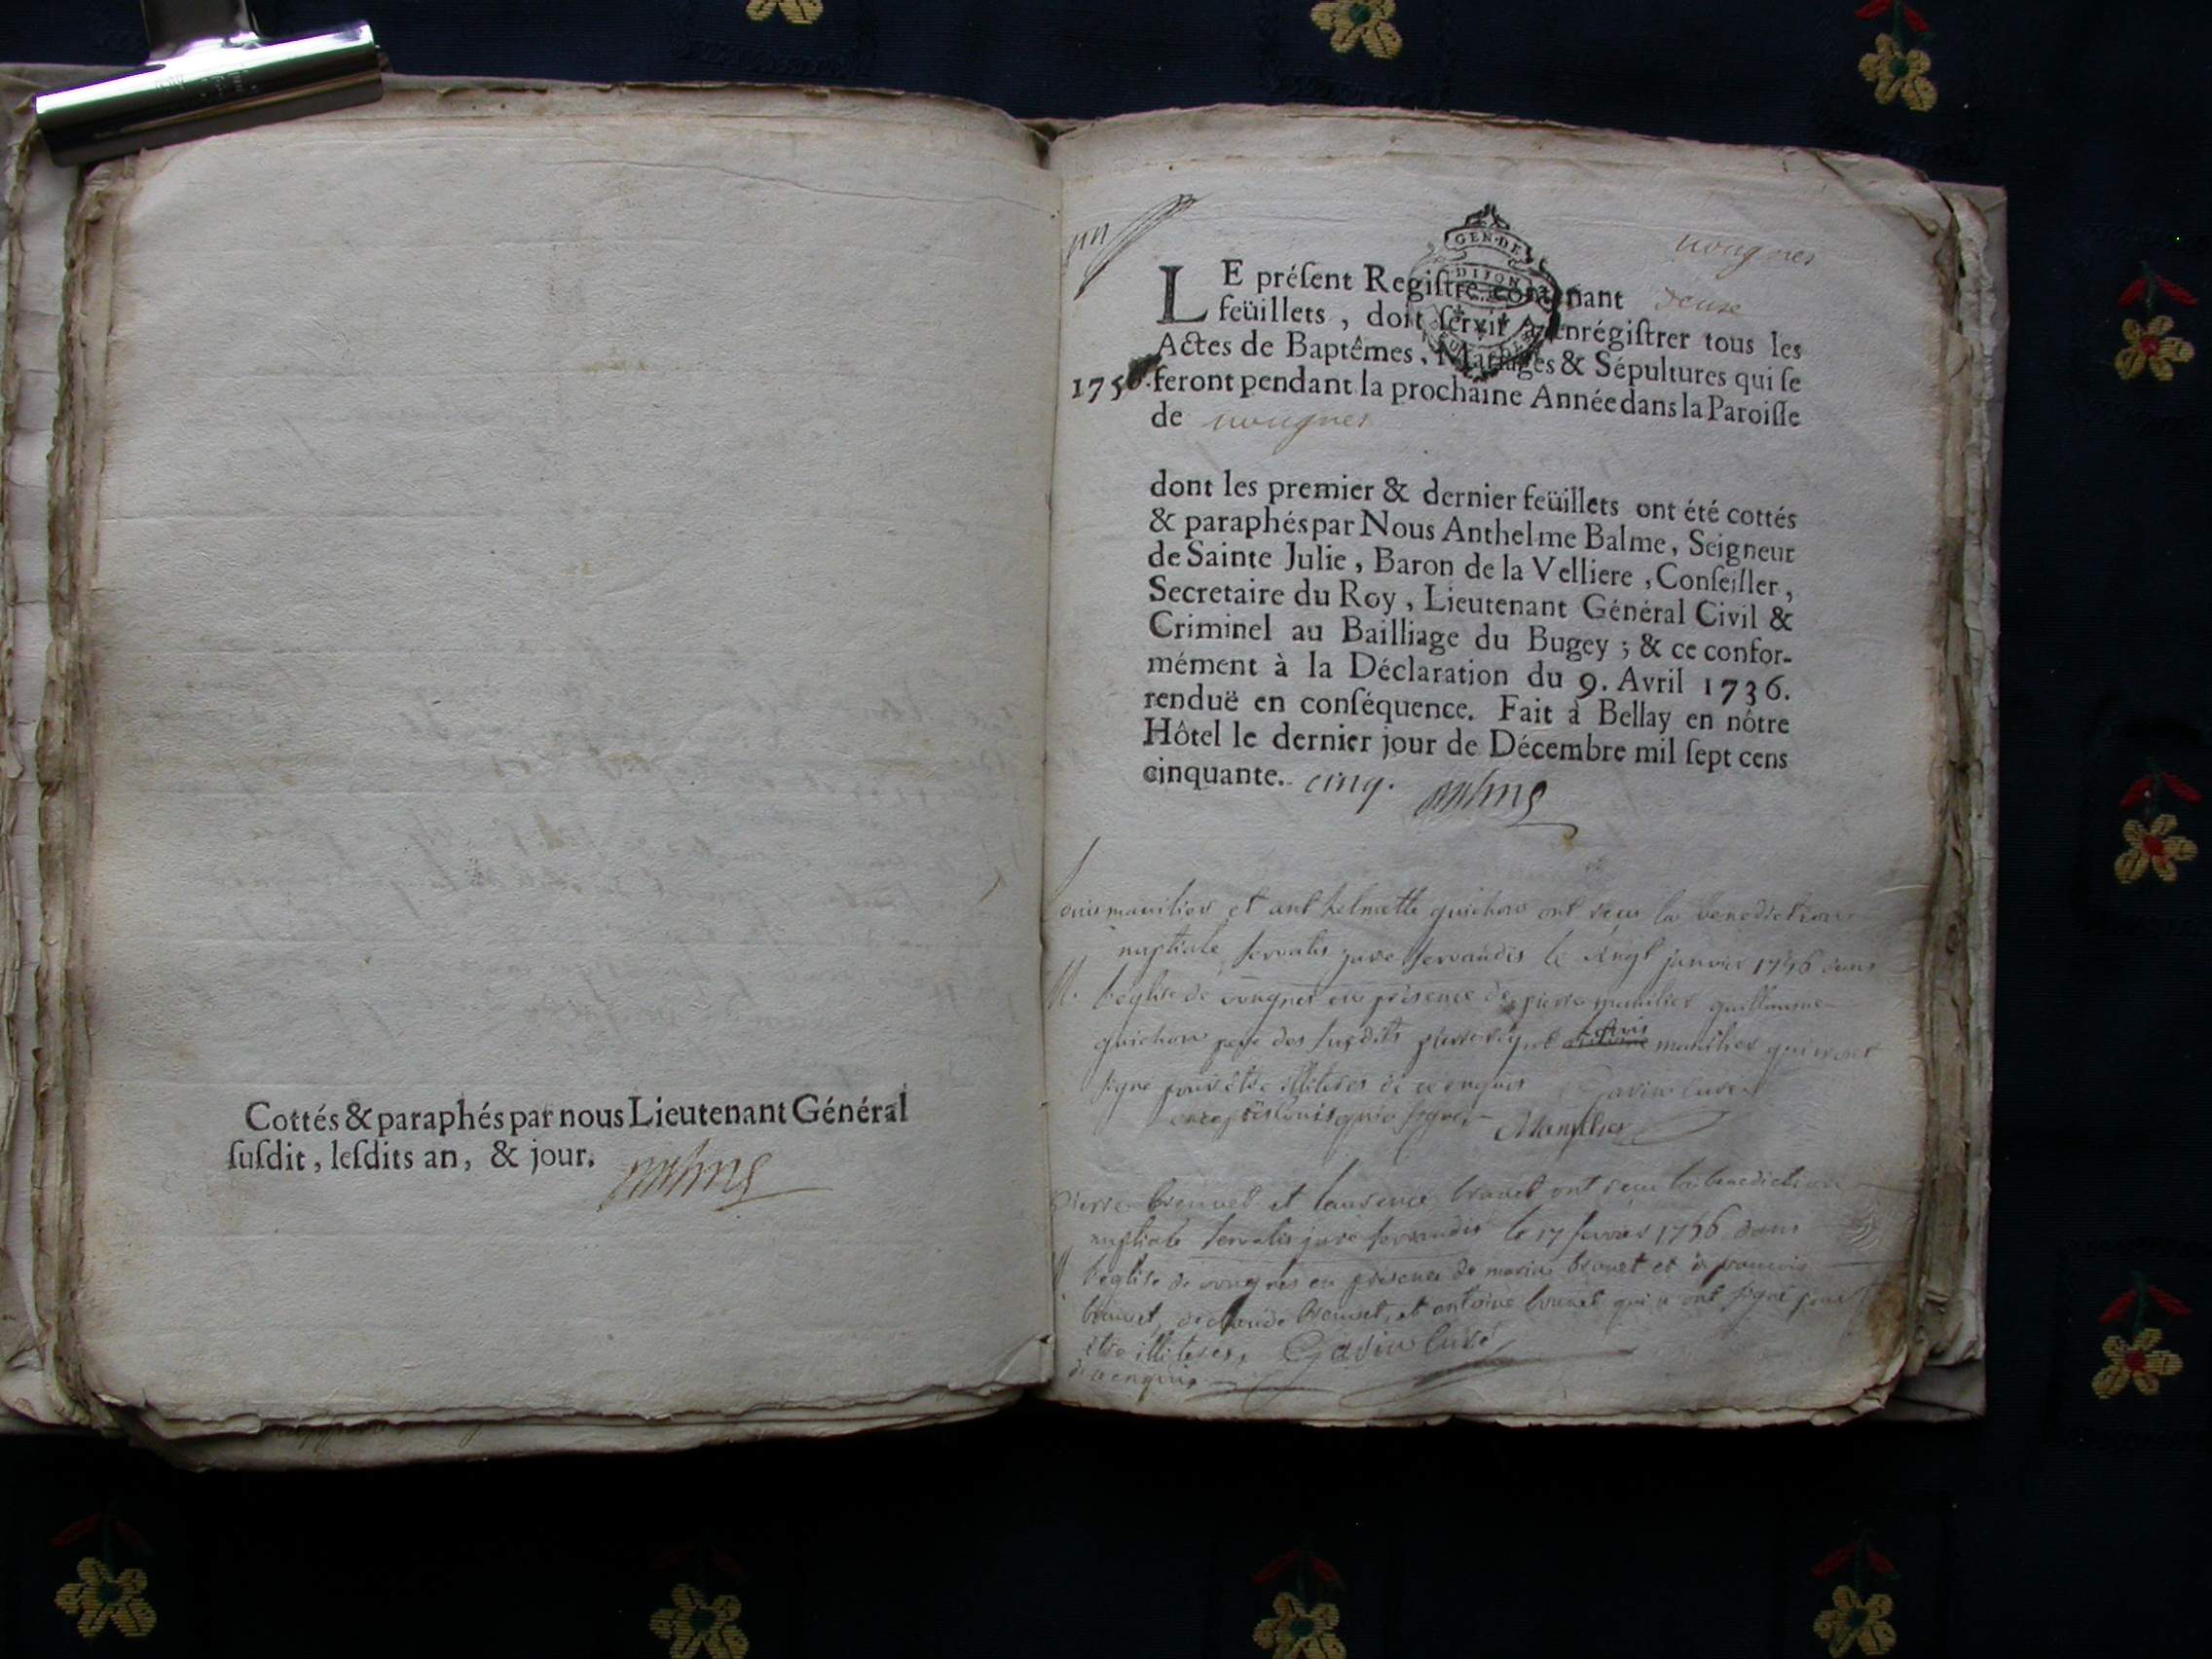 Cottés & paraphés par nous Lieutenant Général
ſuſdit, leſdits an, & jour.
GEN·DE
DIJON
vougnes
LE préſent Regiſtre contenant deuse
feüillets, doit ſervir à enrégiſtrer tous les
Actes de Baptêmes, Mariages & Sépultures qui ſe
1756. feront pendant la prochaine Année dans la Paroiſſe
de vougnes
dont les premier & dernier feüillets ont été cottés
& paraphés par Nous Anthelme Balme, Seigneur
de Sainte Julie, Baron de la Velliere, Conſeiller,
Secretaire du Roy, Lieutenant Général Civil &
Criminel au Bailliage du Bugey; & ce confor-
mément à la Déclaration du 9. Avril 1736.
renduë en conſéquence. Fait à Bellay en nôtre
Hôtel le dernier jour de Décembre mil ſept cens
cinquante. cinq. Balme
Louis manilier et anthelmette guichon ont reçu la benediction
nuptiale servatis jure servandis le vingt janvier 1756 dans
M. l'eglise de vougnes en présence de pierre manilier guillaume
guichon pere des susdits pierre manilier qui n'ont
signé pour être illiteres de ce enquis Gavin curé
exceptés Louis qui a signé Manilier
Pierre brunet et laurence brunet ont reçu la benediction
nuptiale servatis jure servandis le 17 fevrier 1756 dans
M l'église de vougnes en présence de marin brunet et de francois
brunet, de claude brunet, et antoine brunet qui n'ont signé pour
être illiteres, Gavin curé
de ce enquis